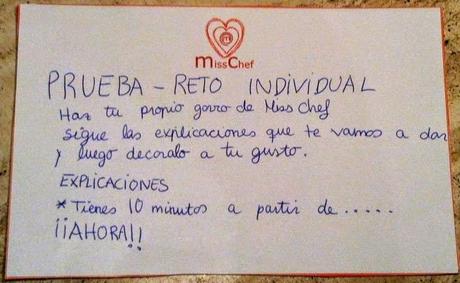 MissChef
PRUEBA - RETO INDIVIDUAL
Haz tu propio gorro de Miss Chef
sigue las explicaciones que te vamos a dar
y luego decoralo a tu gusto.
EXPLICACIONES
* Tienes 10 minutos a partir de .....
¡¡AHORA!!